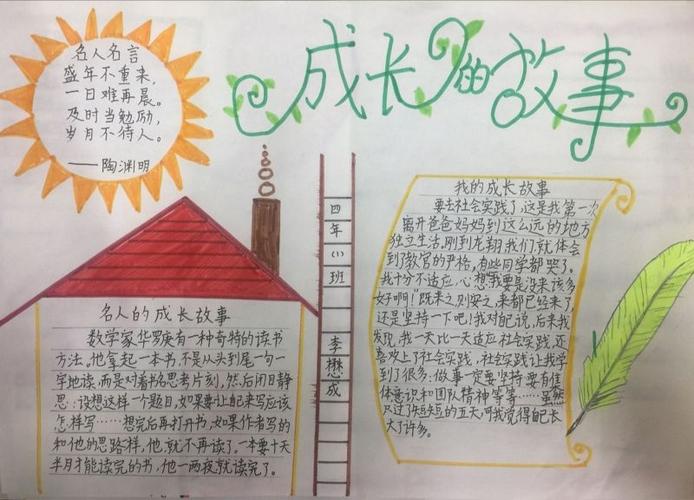 成长的故事
名人名言
盛年不重来，
一日难再晨。
及时当勉励，
岁月不待人。
——陶渊明
名人的成长故事
数学家华罗庚有一种奇特的读书
方法。他拿起一本书不是从头到尾一句一
字地读，而是对着书名思考片刻，然后闭目静
思：设想这样一个题目，如果要让自己来写应该
怎样写……想完后再打开书，如果作者写的
和他的思路一样，他就不再读了。一本要十天
半月才能读完的书，他一两夜就读完了。
四年（1）班 李懋成
我的成长故事
要去社会实践了，这是我第一次
离开爸爸妈妈到这么远的地方
独立生活。刚到龙翔我们就体会
到了教官的严格，有些同学都哭了。
我十分不适应，心想：我要是没来该多
好啊！“既来之则安之，来都已经来了，
还是坚持一下吧！我对自己说，后来我
发现，我一天比一天适应社会实践，还
喜欢上了社会实践，社会实践让我学
到了很多：做事一定要坚持，要有集
体意识和团队精神等等……虽然
只过了短短的五天，可我觉得自己长
大了许多。